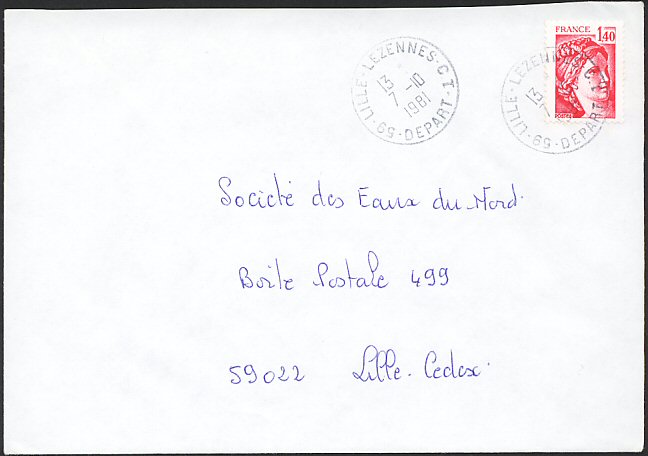 LILLE-LEZENNES-C T.
13
7 -10
1981
59-DEPART
FRANCE
1,40
POSTES
LILLE-LEZENNES-C T.
13
59-DEPART
Société des Eaux du Nord.
Boite Postale 499
59022 Lille-Cedex.